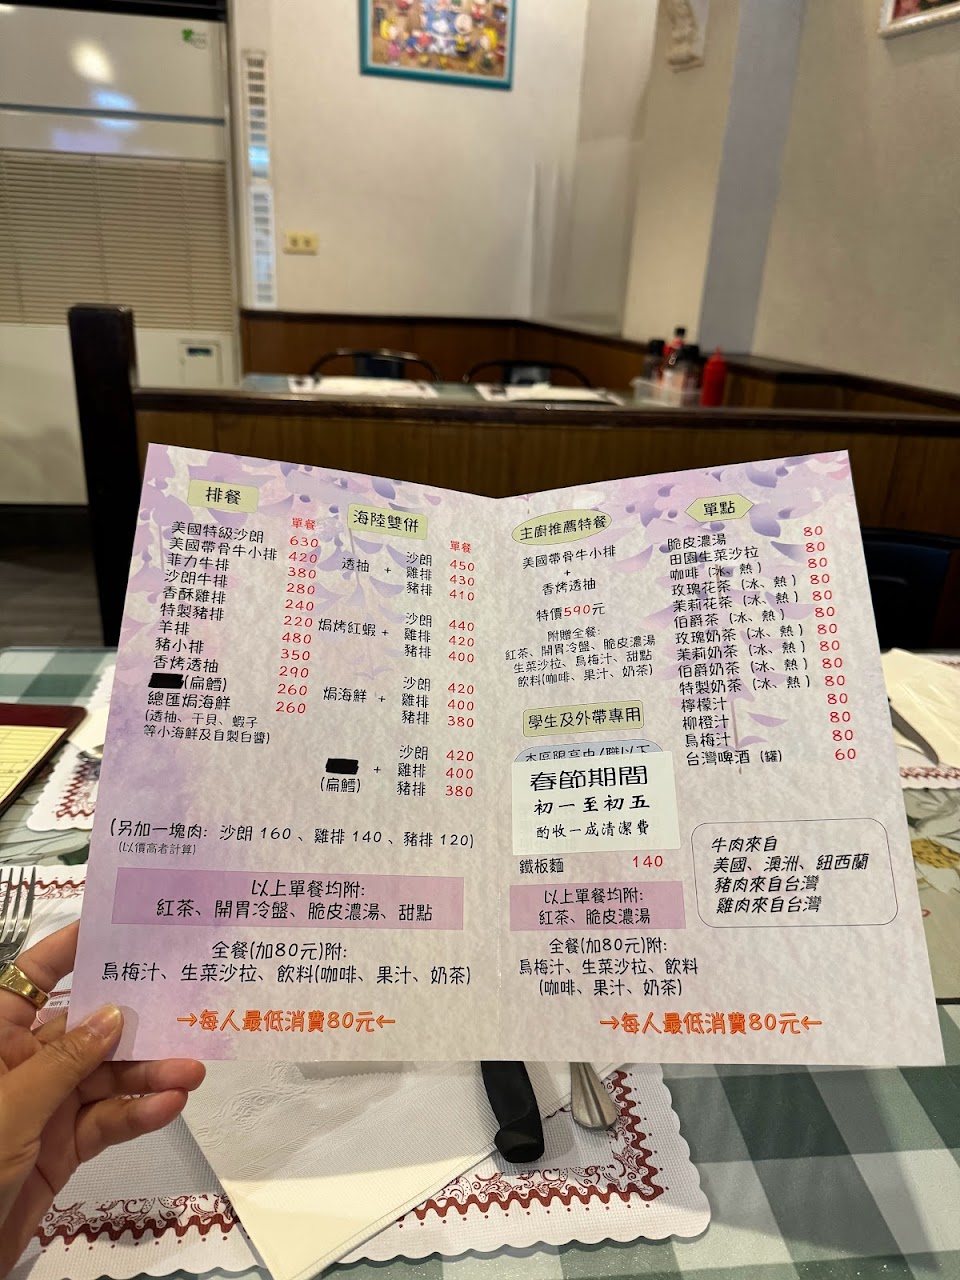 排餐
單餐
美國特級沙朗 630
美國帶骨牛小排 420
菲力牛排 380
沙朗牛排 280
香酥雞排 240
特製豬排 220
羊排 480
豬小排 350
香烤透抽 290
(扁鱈) 260
總匯焗海鮮 260
(透抽、干貝、蝦子
等小海鮮及自製白醬)
海陸雙併
單餐
透抽 + 沙朗 450
雞排 430
豬排 410
焗烤紅蝦 + 沙朗 440
雞排 420
豬排 400
焗海鮮 + 沙朗 420
雞排 400
豬排 380
(扁鱈) + 沙朗 420
雞排 400
豬排 380
(另加一塊肉: 沙朗 160、雞排 140、豬排 120)
(以價高者計算)
以上單餐均附:
紅茶、開胃冷盤、脆皮濃湯、甜點
全餐(加80元)附:
烏梅汁、生菜沙拉、飲料(咖啡、果汁、奶茶)
→每人最低消費80元←
主廚推薦特餐
美國帶骨牛小排
+
香烤透抽
特價590元
附贈全餐:
紅茶、開胃冷盤、脆皮濃湯
生菜沙拉、烏梅汁、甜點
飲料(咖啡、果汁、奶茶)
學生及外帶專用
春節期間
初一至初五
酌收一成清潔費
鐵板麵 140
以上單餐均附:
紅茶、脆皮濃湯
全餐(加80元)附:
烏梅汁、生菜沙拉、飲料
(咖啡、果汁、奶茶)
→每人最低消費80元←
單點
脆皮濃湯 80
田園生菜沙拉 80
咖啡 (冰、熱) 80
玫瑰花茶 (冰、熱) 80
茉莉花茶 (冰、熱) 80
伯爵茶 (冰、熱) 80
玫瑰奶茶 (冰、熱) 80
茉莉奶茶 (冰、熱) 80
伯爵奶茶 (冰、熱) 80
特製奶茶 (冰、熱) 80
檸檬汁 80
柳橙汁 80
烏梅汁 80
台灣啤酒 (罐) 60
牛肉來自
美國、澳洲、紐西蘭
豬肉來自台灣
雞肉來自台灣